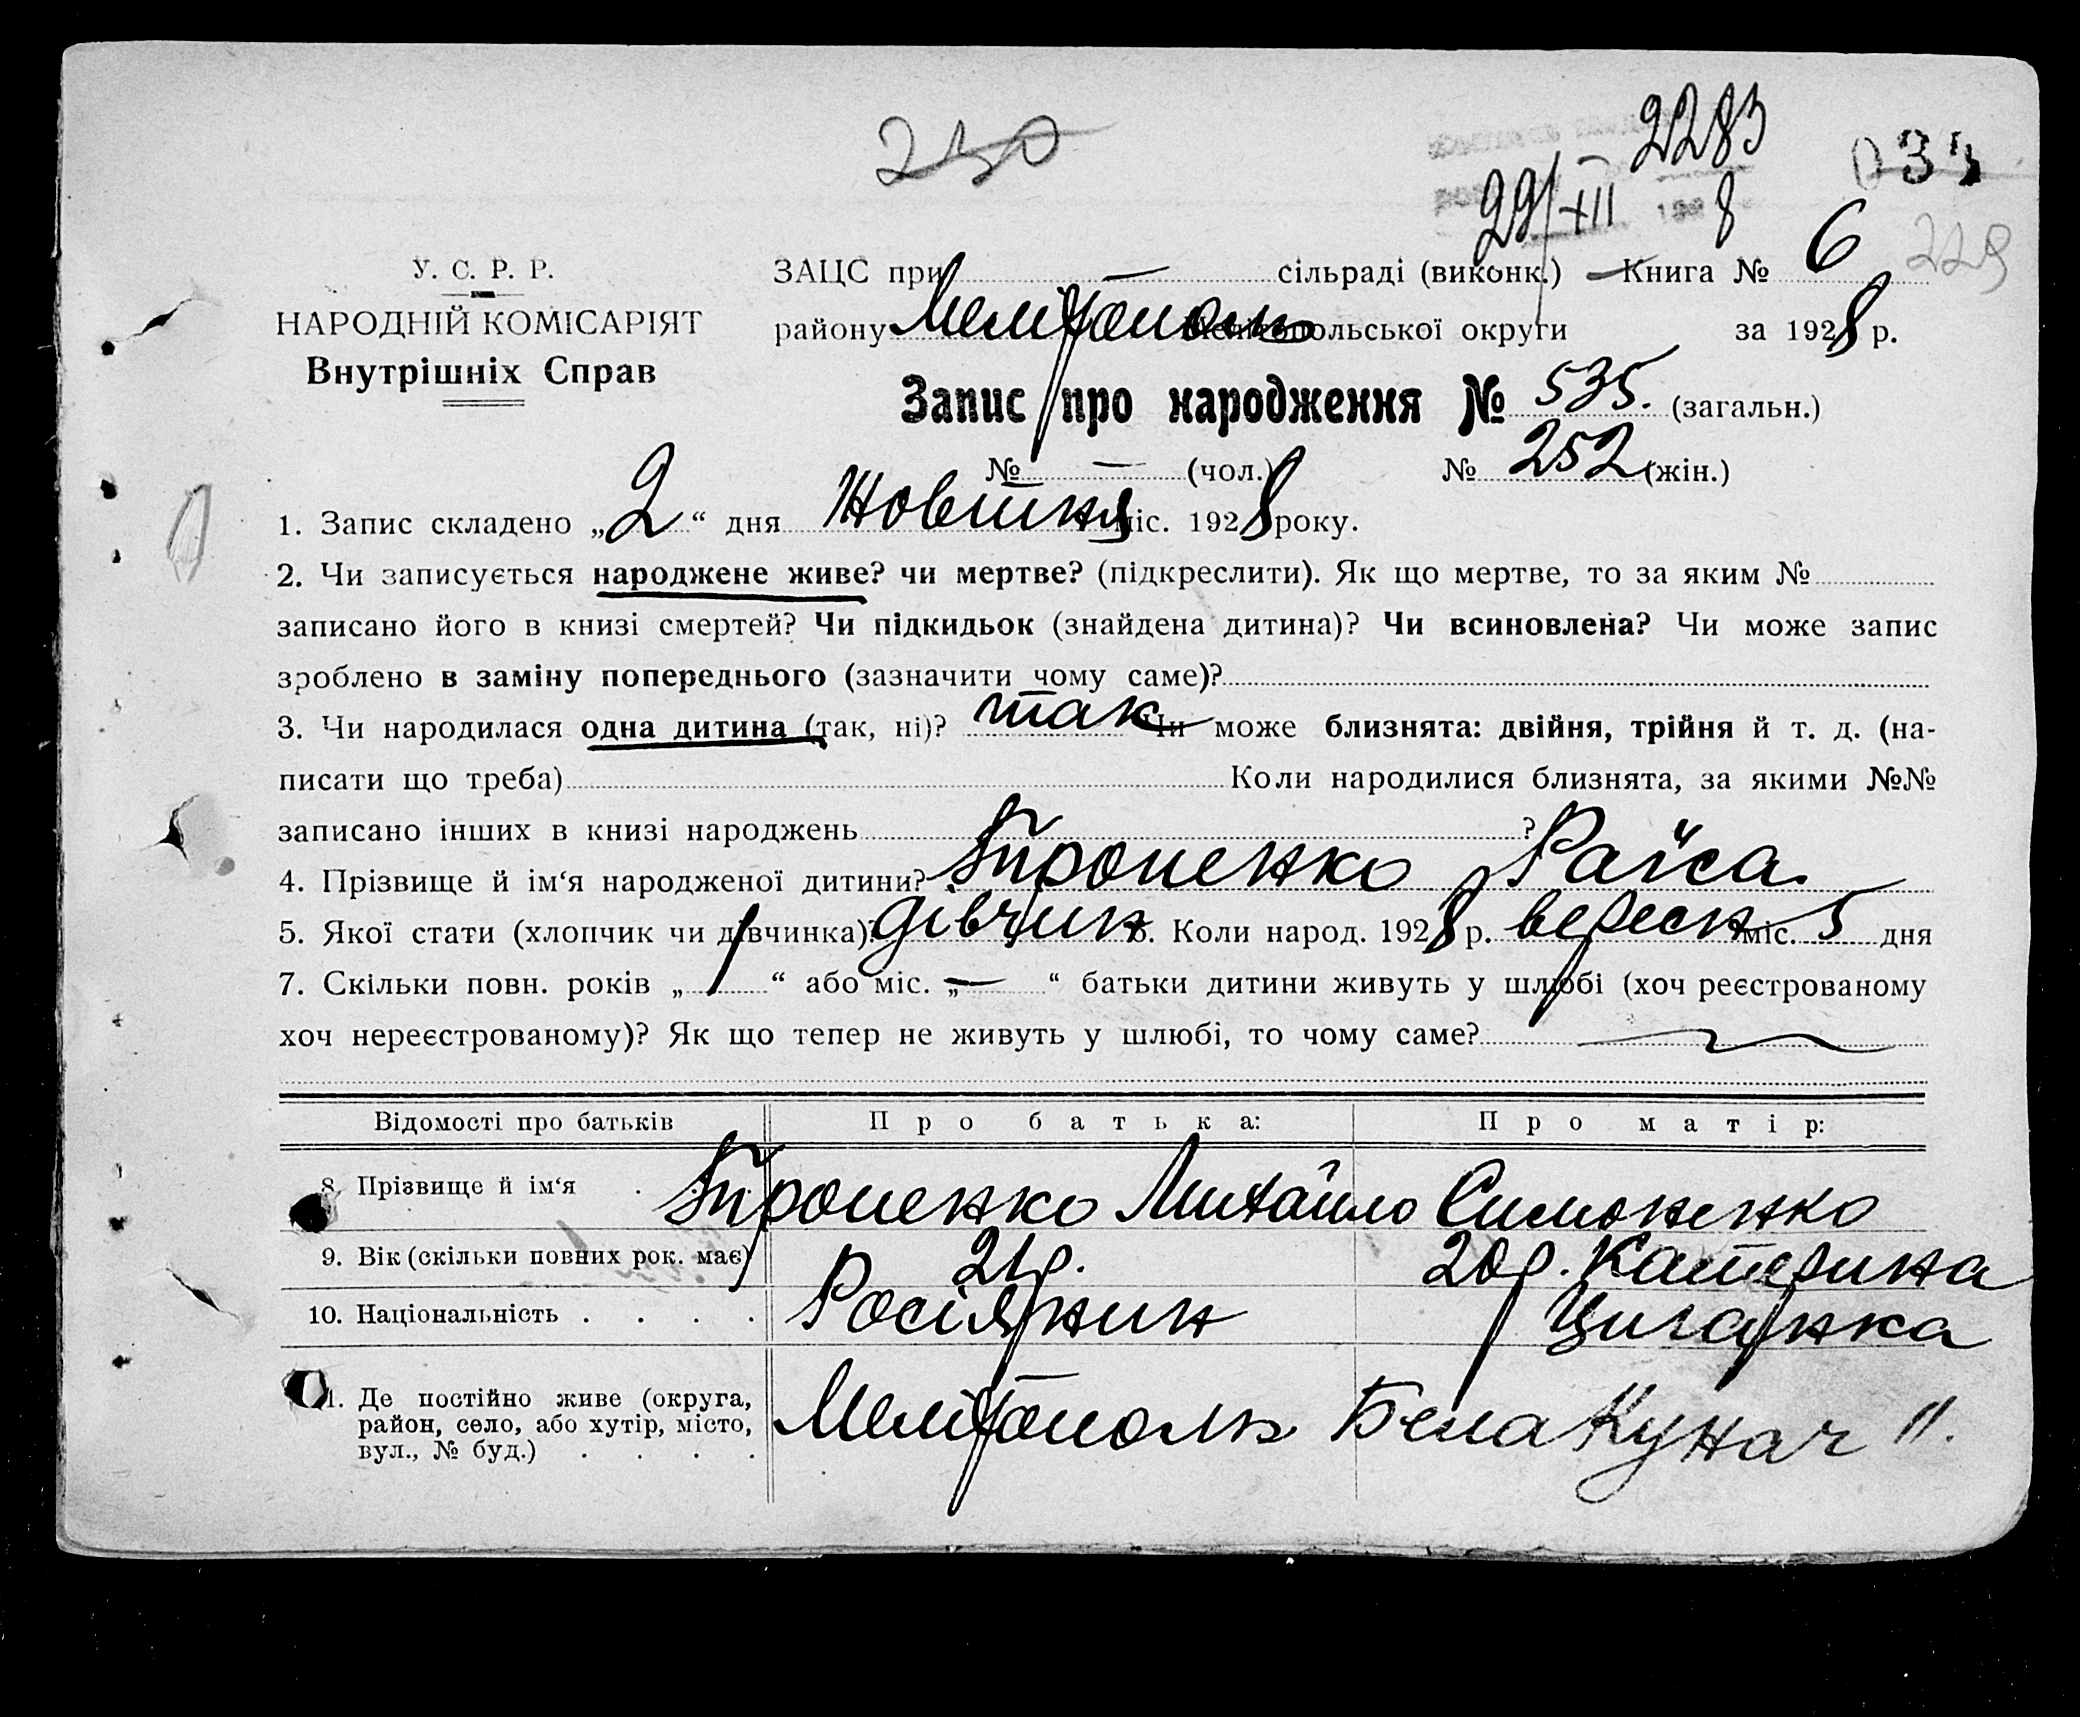 230
2283
033
29/XII 1928
229
У. С. Р. Р.
НАРОДНІЙ КОМІСАРІЯТ
Внутрішніх Справ
ЗАЦС при — сільраді (виконк.) — Книга № 6
району Мелітополь Мелітопольської округи за 1928 р.
Запис про народження № 535. (загальн.)
№ — (чол.) № 252 (жін.)
1. Запис складено „2“ дня Жовтня міс. 1928 року.
2. Чи записується народжене живе? чи мертве? (підкреслити). Як що мертве, то за яким №
записано його в книзі смертей? Чи підкидьок (знайдена дитина)? Чи всиновлена? Чи може запис
зроблено в заміну попереднього (зазначити чому саме)?
3. Чи народилася одна дитина (так, ні)? так Чи може близнята: двійня, трійня й т. д. (на-
писати що треба) Коли народилися близнята, за якими №№
записано інших в книзі народжень ?
4. Прізвище й ім‘я народженої дитини? Тропенко Раїса.
5. Якої стати (хлопчик чи дівчинка)? дівчин 6. Коли народ. 1928 р. вересн міс. 5 дня
7. Скільки повн. років „1“ або міс. „—“ батьки дитини живуть у шлюбі (хоч реєстрованому
хоч нереєстрованому)? Як що тепер не живуть у шлюбі, то чому саме?
Відомості про батьків Про батька: Про матір:
8. Прізвище й ім‘я . Тропенко Михайло Симоненко
9. Вік (скільки повних рок. має) 21р. 20р. Катерина
10. Національність . . . . Росіянин Циганка
11. Де постійно живе (округа,
район, село, або хутір, місто,
вул., № буд.) . . . . Мелітополь Бела Кунач 11.